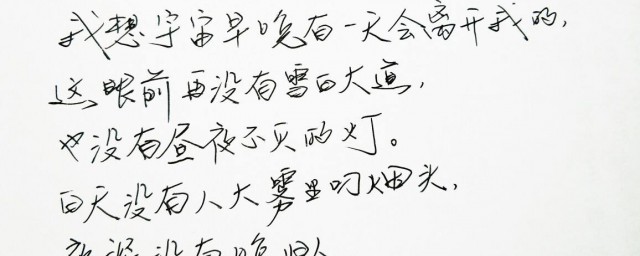 我想宇宙早晚有一天会离开我的,
这眼前再没有雪白大道,
也没有昼夜不灭的灯。
白天没有人大雾里叼烟头,
没有晚归人